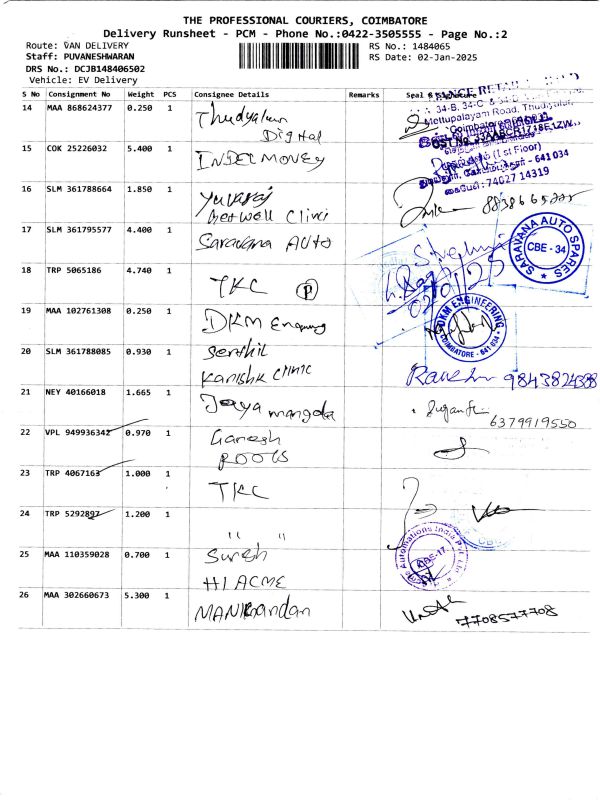 THE PROFESSIONAL COURIERS, COIMBATORE
Delivery Runsheet - PCM - Phone No.:0422-3505555 - Page No.:2
Route: VAN DELIVERY
RS No.: 1484065
Staff: PUVANESHWARAN
RS Date: 02-Jan-2025
DRS No.: DCJB148406502
Vehicle: EV Delivery
S No Consignment No Weight PCS Consignee Details Remarks Seal & Signature
14 MAA 868624377 0.250 1 Thudyalur
Digital
34-B, 34-C &
Mettupalayam Road, Thudiyalur,
Coimbatore
GST No.
15 COK 25226032 5.400 1 INDEL MONEY
(I st Floor)
641 034
74027 14319
16 SLM 361788664 1.850 1 Yuvaraj
Getwell Clinic
17 SLM 361795577 4.400 1 Saravana Auto
SARAVANA AUTO SPARES
CBE - 34
18 TRP 5065186 4.740 1 TKC P
19 MAA 102761308 0.250 1 DKM Engineering
DKM ENGINEERING
COIMBATORE - 641 034
20 SLM 361788085 0.930 1 Senthil
Kanishk Clinic
21 NEY 40166018 1.665 1 Jeya mangala
Suganthi
6379919550
22 VPL 949936342 0.970 1 Ganesh
ROOTS
23 TRP 4067163 1.000 1 TKC
24 TRP 5292897 1.200 1 " "
25 MAA 110359028 0.700 1 Suresh
HI ACME
Acme Automations India Pvt. Ltd.
CBE-17
26 MAA 302660673 5.300 1 MANIkandan
7708577708